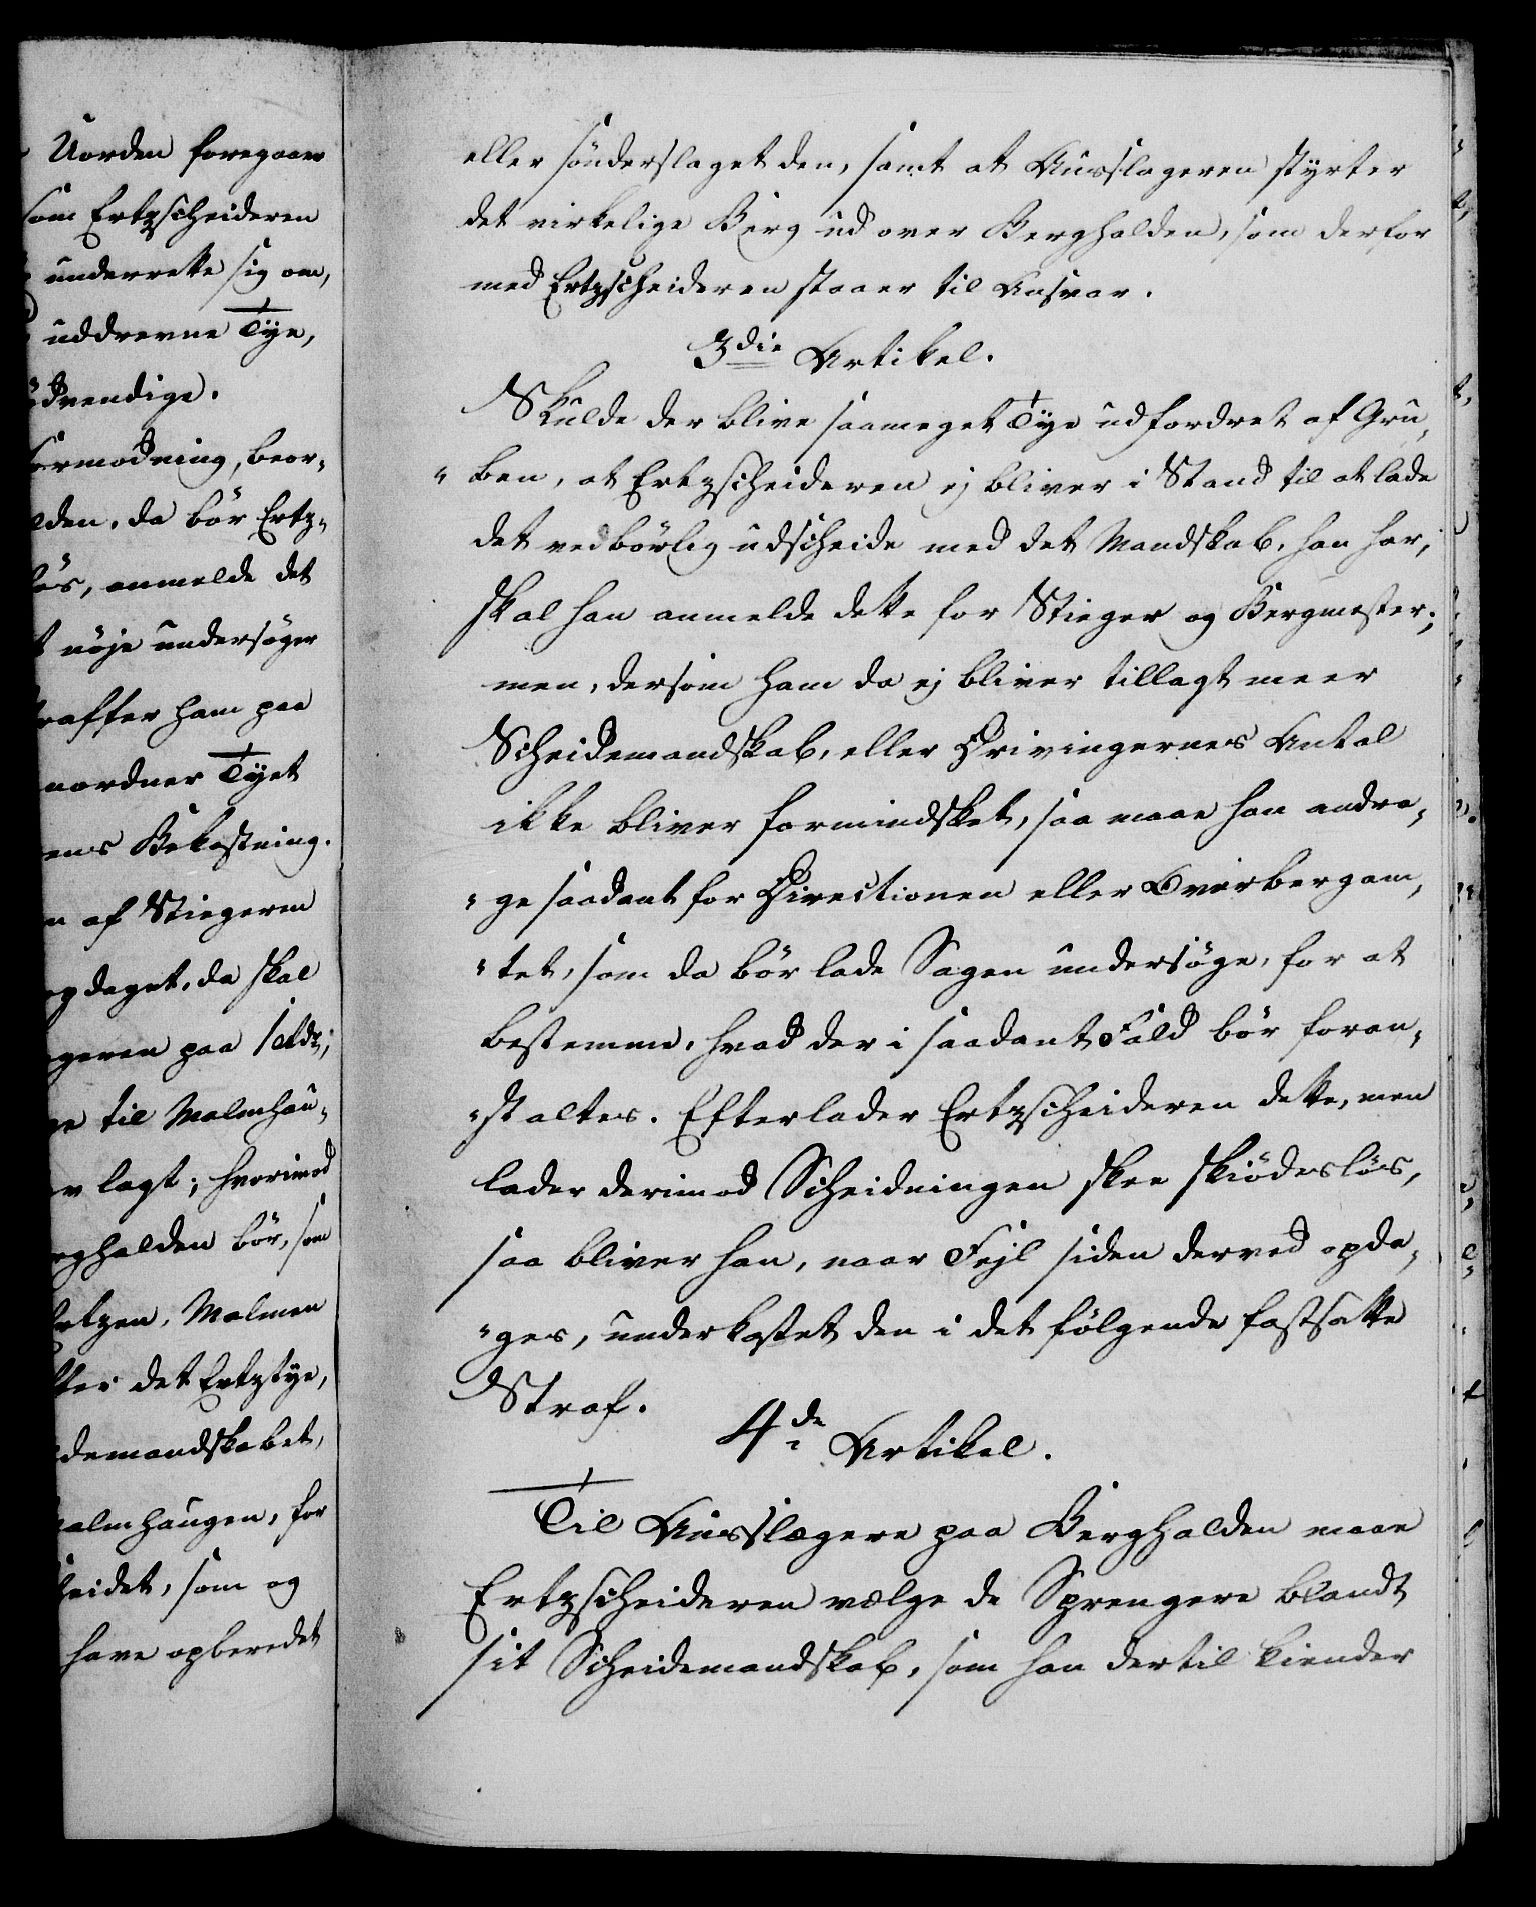 Uorden foregaaer
som Ertzscheideren
underrette sig om,
uddrevne Tye,
ödvendige.
formodning, beor-
lden, da bör Ertz-
lös, anmelde det
t nöje undersöger
raffer ham paa
nordner Tyet
ens Bekostning.
n af Stigeren
opdaget, da skal
geren paa 1 Rdr,
ge til Malmhau-
er lagt; hvorimod
rghalden bör, som
Ertzen, Malmen
ter det Ertztye,
demandskabet,
Malmhaugen, for
heidet, som og
have opberedet
eller sönderslaget den, samt at Ausslageren styrter
det virkelige Berg ud over Berghalden, som derfor
med Ertzscheideren staaer til Ansvar.
3die Artikel.
Skulde der blive saameget Tye udfordret af Gru-
"ben, at Ertzscheideren ej bliver i Stand til at lade
det vedbörlig udscheide med det Mandskab, han har,
skal han anmelde dette for Stieger og Bergmester;
men, dersom ham da ej bliver tillagt meer
Scheidemandskab, eller Drivingernes Antal
ikke bliver formindsket, saa maae han andra-
"ge saadant for Directionen eller Overbergam-
"tet, som da bör lade Sagen undersöge, for at
bestemme, hvad der i saadant Fald bör foran-
"staltes. Efterlader Ertzscheideren dette, men
lader derimod Scheidningen skee skiödeslös,
saa bliver han, naar Fejl siden derved opda-
"ges, underkastet den i det fölgende fastsatte
Straf.
4de Artikel.
Til Ausslægere paa Berghalden maae
Ertzscheideren vælge de Sprengere blandt
sit Scheidemandskab, som han dertil kiender